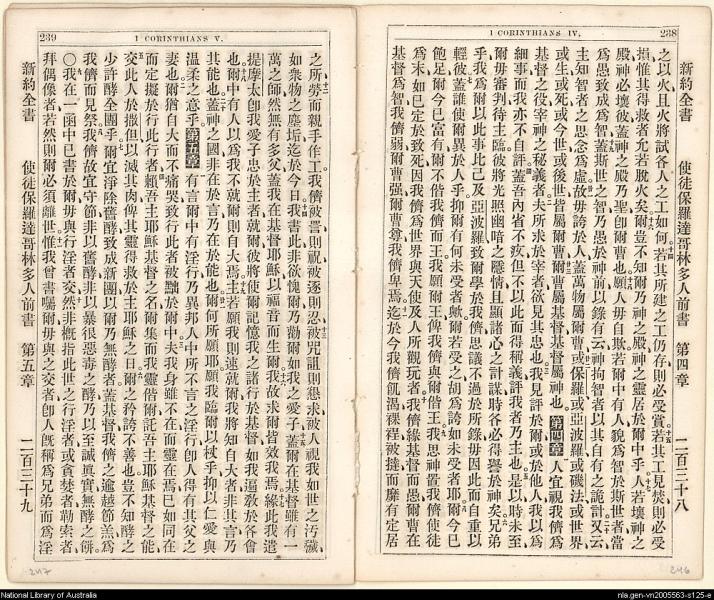 238
I CORINTHIANS IV.
新約全書 使徒保羅達哥林多人前書 第四章 二百三十八
之以火且火將試各人之工如何若其所建之工仍存則必受賞若其工見焚則必受
損惟其得救者允若脫火矣爾豈不知爾乃神之殿神之靈居於爾中乎人若壞神之
殿神必壞彼蓋神之殿乃聖卽爾曹也願人毋自欺若爾中有人貌爲智於斯世者當
爲愚致成爲智蓋斯世之智乃愚於神前以錄有云神拘智者以其自有之詭計又云
主知智者之思念爲虛故毋誇於人蓋萬物屬爾曹或保羅或亞波羅或磯法或世界
或生或死或今世或後世皆屬爾曹爾曹屬基督基督屬神也第四章人宜視我儕爲
基督之役宰神之秘義者夫所求於宰者欲見其忠也我見評於爾或於他人我以爲
細事而我亦不自評蓋吾內省不疚但不以此而得稱義評我者乃主也是以時未至
爾毋審判待主臨彼將光照幽暗之隱情且顯諸心之計謀時各必得譽於神矣兄弟
乎我爲爾以此事比己及亞波羅致爾學於我儕思議不過於所錄毋因此而自重以
輕彼蓋誰使爾異於人乎抑爾有何未受者歟爾若受之胡爲誇如未受者耶爾今已
飽足爾今已富有爾不偕我儕而王我願爾王俾我儕與爾偕王我思神置我儕使徒
爲末如已定於致死因我儕爲世界與天使及人所觀玩者我儕緣基督而愚爾曹在
基督爲智我儕弱爾曹强爾曹尊我儕卑焉迄於今我儕飢渴裸裎被撻而靡有定居
246
239
I CORINTHIANS V.
之所勞而親手作工我儕被詈則祝被逐則忍被咒詛則懇求被人視我如世之汚穢
如衆物之塵垢迄於今日我書此非欲愧爾乃勸爾如我之愛子蓋爾在基督雖有一
萬之師然無有多父蓋我在基督耶穌以福音而生爾我故求爾皆效我焉緣此我遣
提摩太卽我愛子忠於主者就爾彼將使爾記憶我之諸行於基督如我遍敎於各會
也爾中有人以爲我不就爾則自大焉主若願我則速就爾我將知自大者非其言乃
其能也蓋神之國非在於言乃在於能也爾何所願耶願我臨爾以杖乎抑以仁愛與
温柔之意乎第五章有言爾中有淫行乃異邦人中所不言之淫行卽人得有其父之
妻也爾猶自大而不痛哭致行此者被黜於爾中夫我身雖不在而靈在焉已如同在
而定擬於行此行者賴吾主耶穌基督之名爾集而我靈偕爾託吾主耶穌基督之能
交此人於撒但以滅其肉俾其靈得救於主耶穌之日爾之矜誇不善也豈不知酵之
少許酵全團乎爾宜淨除舊酵致成新團以爾乃無酵者蓋基督我儕之逾越節羔爲
我儕而見祭我儕故宜守節非以舊酵非以暴很惡毒之酵乃以至誠眞實無酵之餅
〇我在一函中已書於爾毋與行淫者交然非槪指此世之行淫者或貪婪者勒索者
拜偶像者若然則爾必須離世惟我曾書囑爾毋與之交者卽人旣稱爲兄弟而爲淫
新約全書 使徒保羅達哥林多人前書 第五章 二百三十九
247
National Library of Australia
nla.gen-vn2005563-s125-e